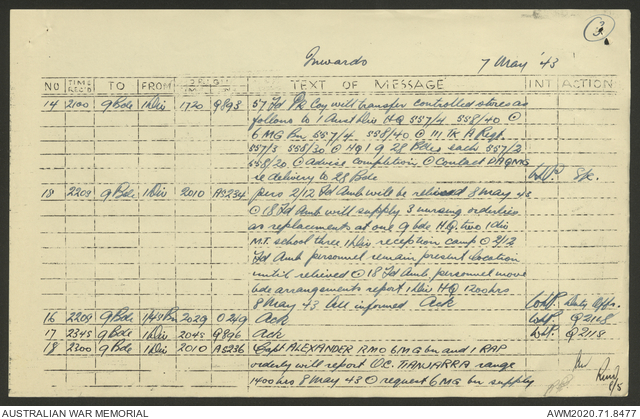 3
Inwards 7 May '43
NO TIME REC'D TO FROM ORIGIN TEXT OF MESSAGE INT ACTION
14 2100 9 Bde 1 Div 1720 Q893 57 Fd Pk Coy will transfer controlled stores as
follows to 1 Aust Div HQ 557/4 558/40 @
6 MG Bn 557/4 558/40 @ 111 TK A Regt
557/3 558/30 @ HQ 1 9 28 Bdes each 557/2
558/20 @ advise completion @ Contact DAQMG
re delivery to 28 Bde
18 2209 9 Bde 1 Div 2010 AS234 pers 2/12 Fd Amb will be relieved 8 May 43
@ 18 Fd Amb will supply 3 nursing orderlies
as replacements at one 9 bde HQ. two 1 div
M.T. school three 1 Div reception camp @ 2/12
Fd Amb personnel remain present location
until relieved @ 18 Fd Amb, personnel move
bde arrangements report 1 Div HQ 1200 hrs
8 May 43 All informed Ack
16 2209 9 Bde 2029 O249 Ack Q2118
17 2345 9 Bde 1 Div 2045 Q896 Ack Q2118
18 2300 9 Bde 1 Div 2010 AS236 Capt ALEXANDER RMO 6 MG bn and 1 RAP
orderly will report O.C. TIANJARRA range
1400 hrs 8 May 43 @ request 6 MG bn supply
AUSTRALIAN WAR MEMORIAL AWM2020.71.8477